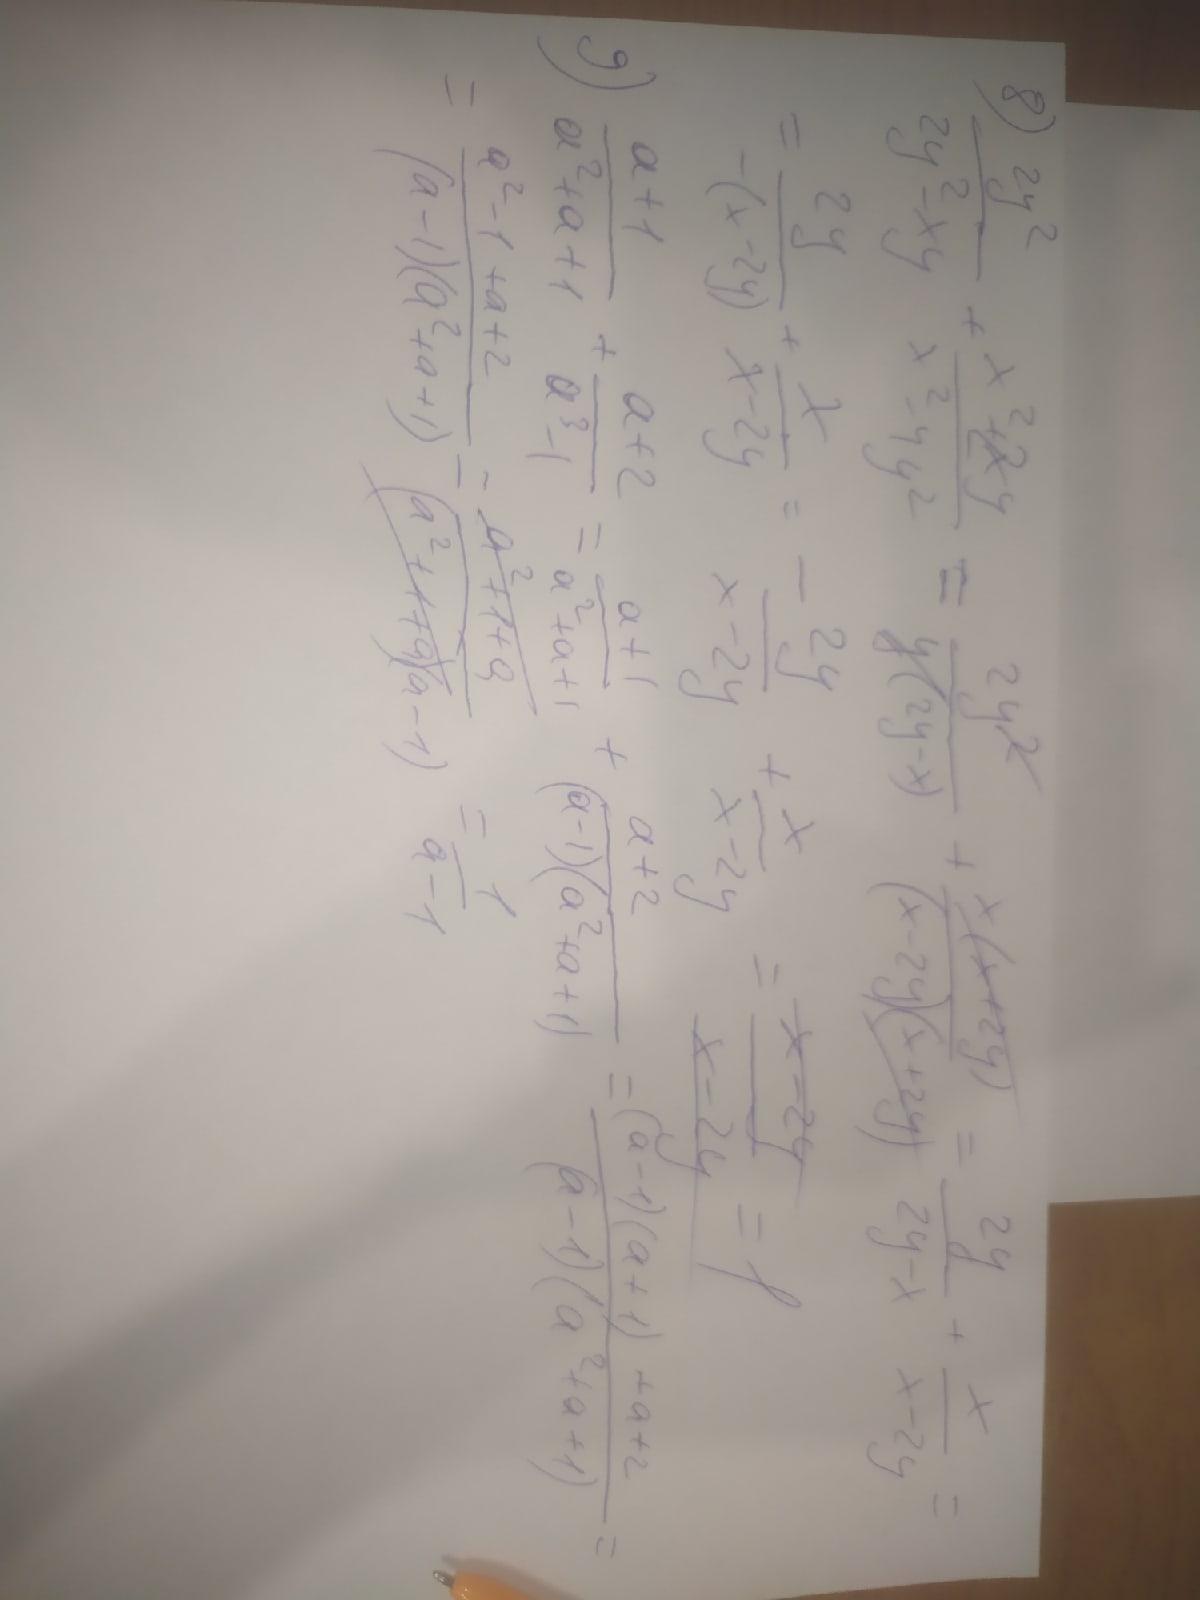 8) 2y²/(2y²-xy) + (x²+2xy)/(x²-4y²) = 2y²/(y(2y-x)) + x(x+2y)/((x-2y)(x+2y)) = 2y/(2y-x) + x/(x-2y) =
= 2y/(-(x-2y)) + x/(x-2y) = - 2y/(x-2y) + x/(x-2y) = (x-2y)/(x-2y) = 1
9) (a+1)/(a²+a+1) + (a+2)/(a³-1) = (a+1)/(a²+a+1) + (a+2)/((a-1)(a²+a+1)) = ((a-1)(a+1)+a+2)/((a-1)(a²+a+1)) =
= (a²-1+a+2)/((a-1)(a²+a+1)) = (a²+1+a)/((a²+1+a)(a-1)) = 1/(a-1)